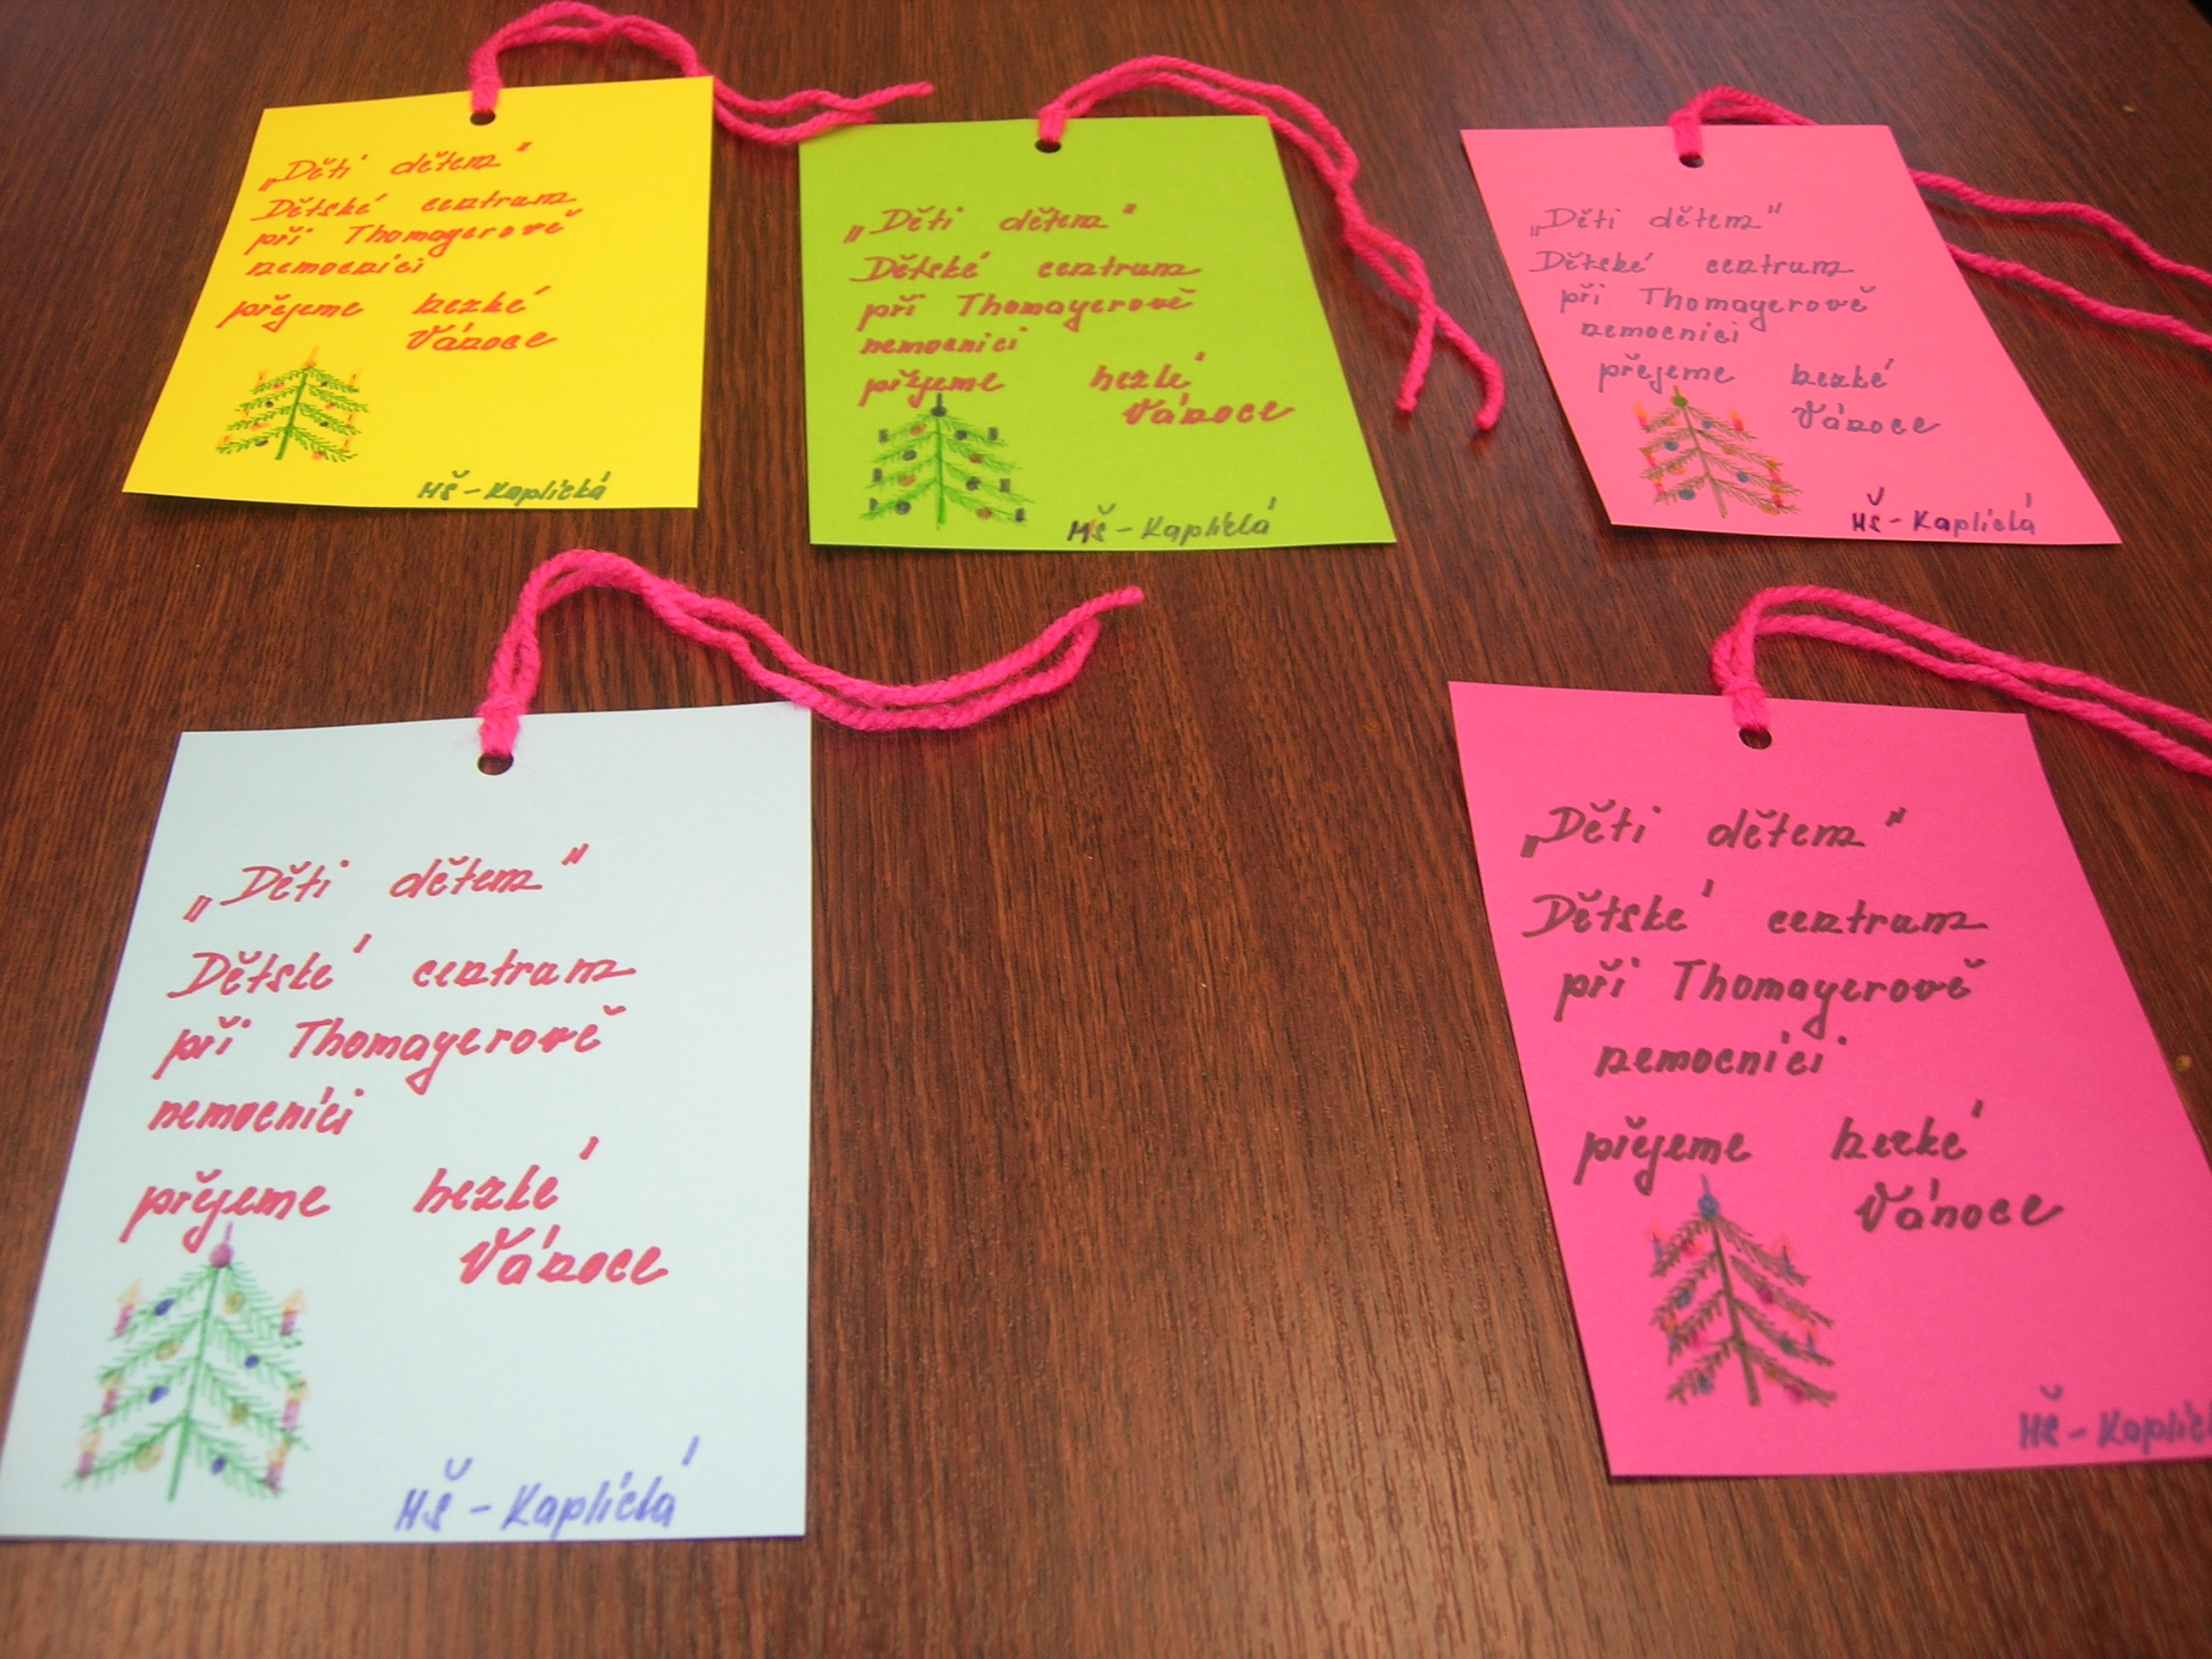 „Děti dětem"
Dětské centrum
při Thomayerově
nemocnici
přejeme hezké
Vánoce
MŠ - Kaplická
„Děti dětem"
Dětské centrum
při Thomayerově
nemocnici
přejeme hezké
Vánoce
MŠ - Kaplická
„Děti dětem"
Dětské centrum
při Thomayerově
nemocnici
přejeme hezké
Vánoce
MŠ - Kaplická
„Děti dětem"
Dětské centrum
při Thomayerově
nemocnici
přejeme hezké
Vánoce
MŠ - Kaplická
„Děti dětem"
Dětské centrum
při Thomayerově
nemocnici
přejeme hezké
Vánoce
MŠ - Kaplick